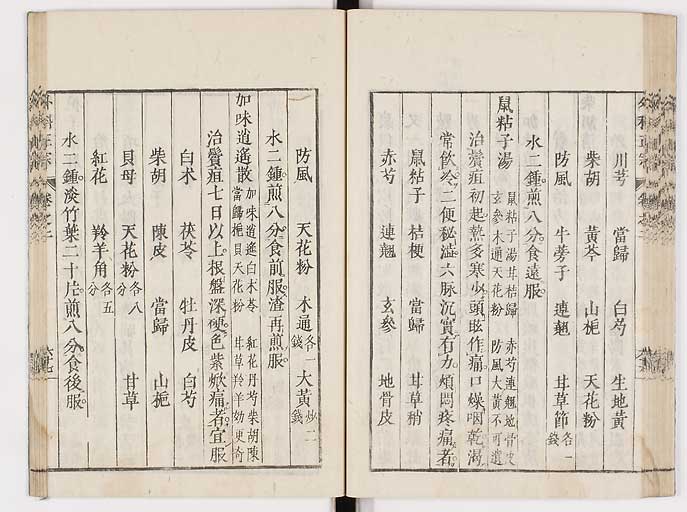 川芎 當歸 白芍 生地黃
柴胡 黃芩 山梔 天花粉
防風 牛蒡子 連翹 甘草節各一錢
水二鍾煎八分食遠服
鼠粘子湯 鼠粘子湯甘桔歸 赤芍連翹地骨皮
玄參木通天花粉 防風大黃不可遺
治鬢疽初起熱多寒少頭眩作痛口燥咽乾渴
常飲冷二便秘澁六脉沉實有力煩悶疼痛者
鼠粘子 桔梗 當歸 甘草稍
赤芍 連翹 玄參 地骨皮
防風 天花粉 木通各一錢 大黃炒二錢
水二鍾煎八分食前服渣再煎服
加味逍遙散 加味逍遙白朮苓 紅花丹芍柴胡陳
當歸梔貝天花粉 甘草羚羊効更奇
治鬢疽七日以上根盤深硬色紫焮痛者宜服
白朮 茯苓 牡丹皮 白芍
柴胡 陳皮 當歸 山梔
貝母 天花粉各八分 甘草
紅花 羚羊角各五分
水二鍾淡竹葉二十片煎八分食後服